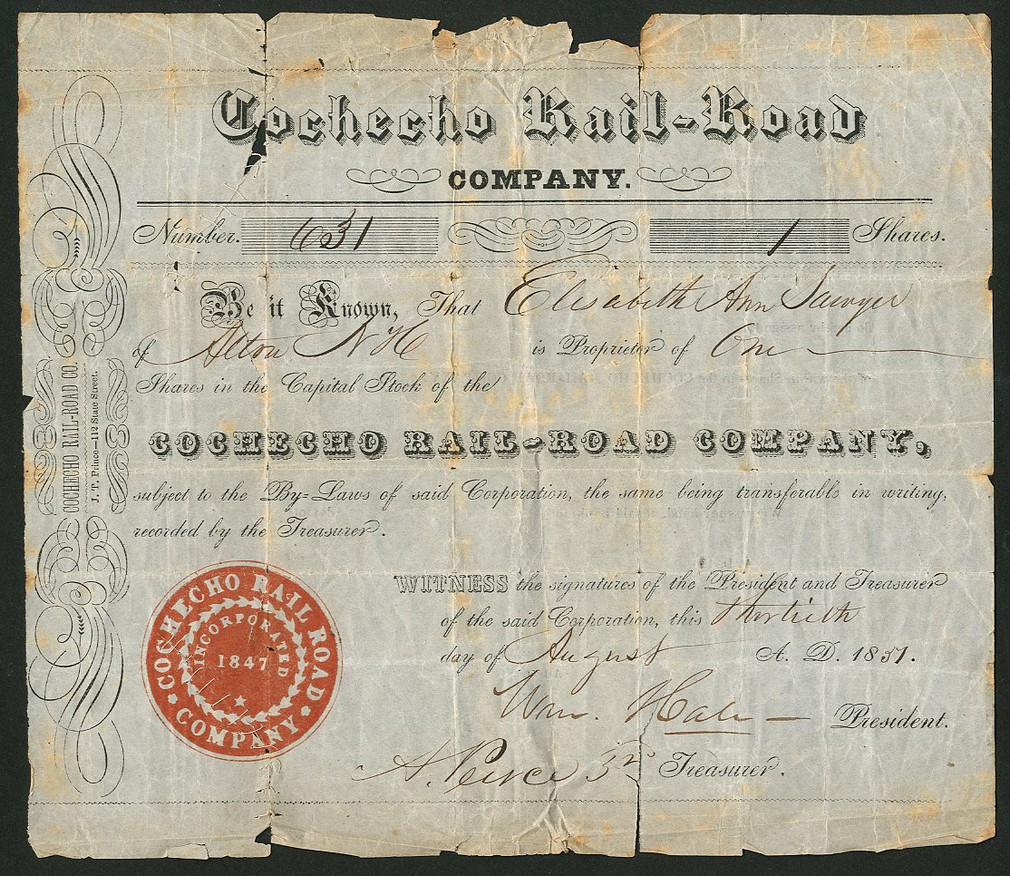 Cochecho Rail-Road
COMPANY.
Number. 631 1 Shares.
Be it Known, That Elisabeth Ann Sawyer
of Alton NH is Proprietor of One
Shares in the Capital Stock of the
COCHECHO RAIL-ROAD COMPANY,
subject to the By-Laws of said Corporation, the same being transferable in writing,
recorded by the Treasurer.
WITNESS the signatures of the President and Treasurer
of the said Corporation, this thirtieth
day of August A. D. 1851.
Wm. Hale President.
A. Peirce 3rd Treasurer.
COCHECHO RAIL ROAD COMPANY
INCORPORATED
1847
COCHECHO RAIL-ROAD CO.
J. T. Prince—112 State Street.